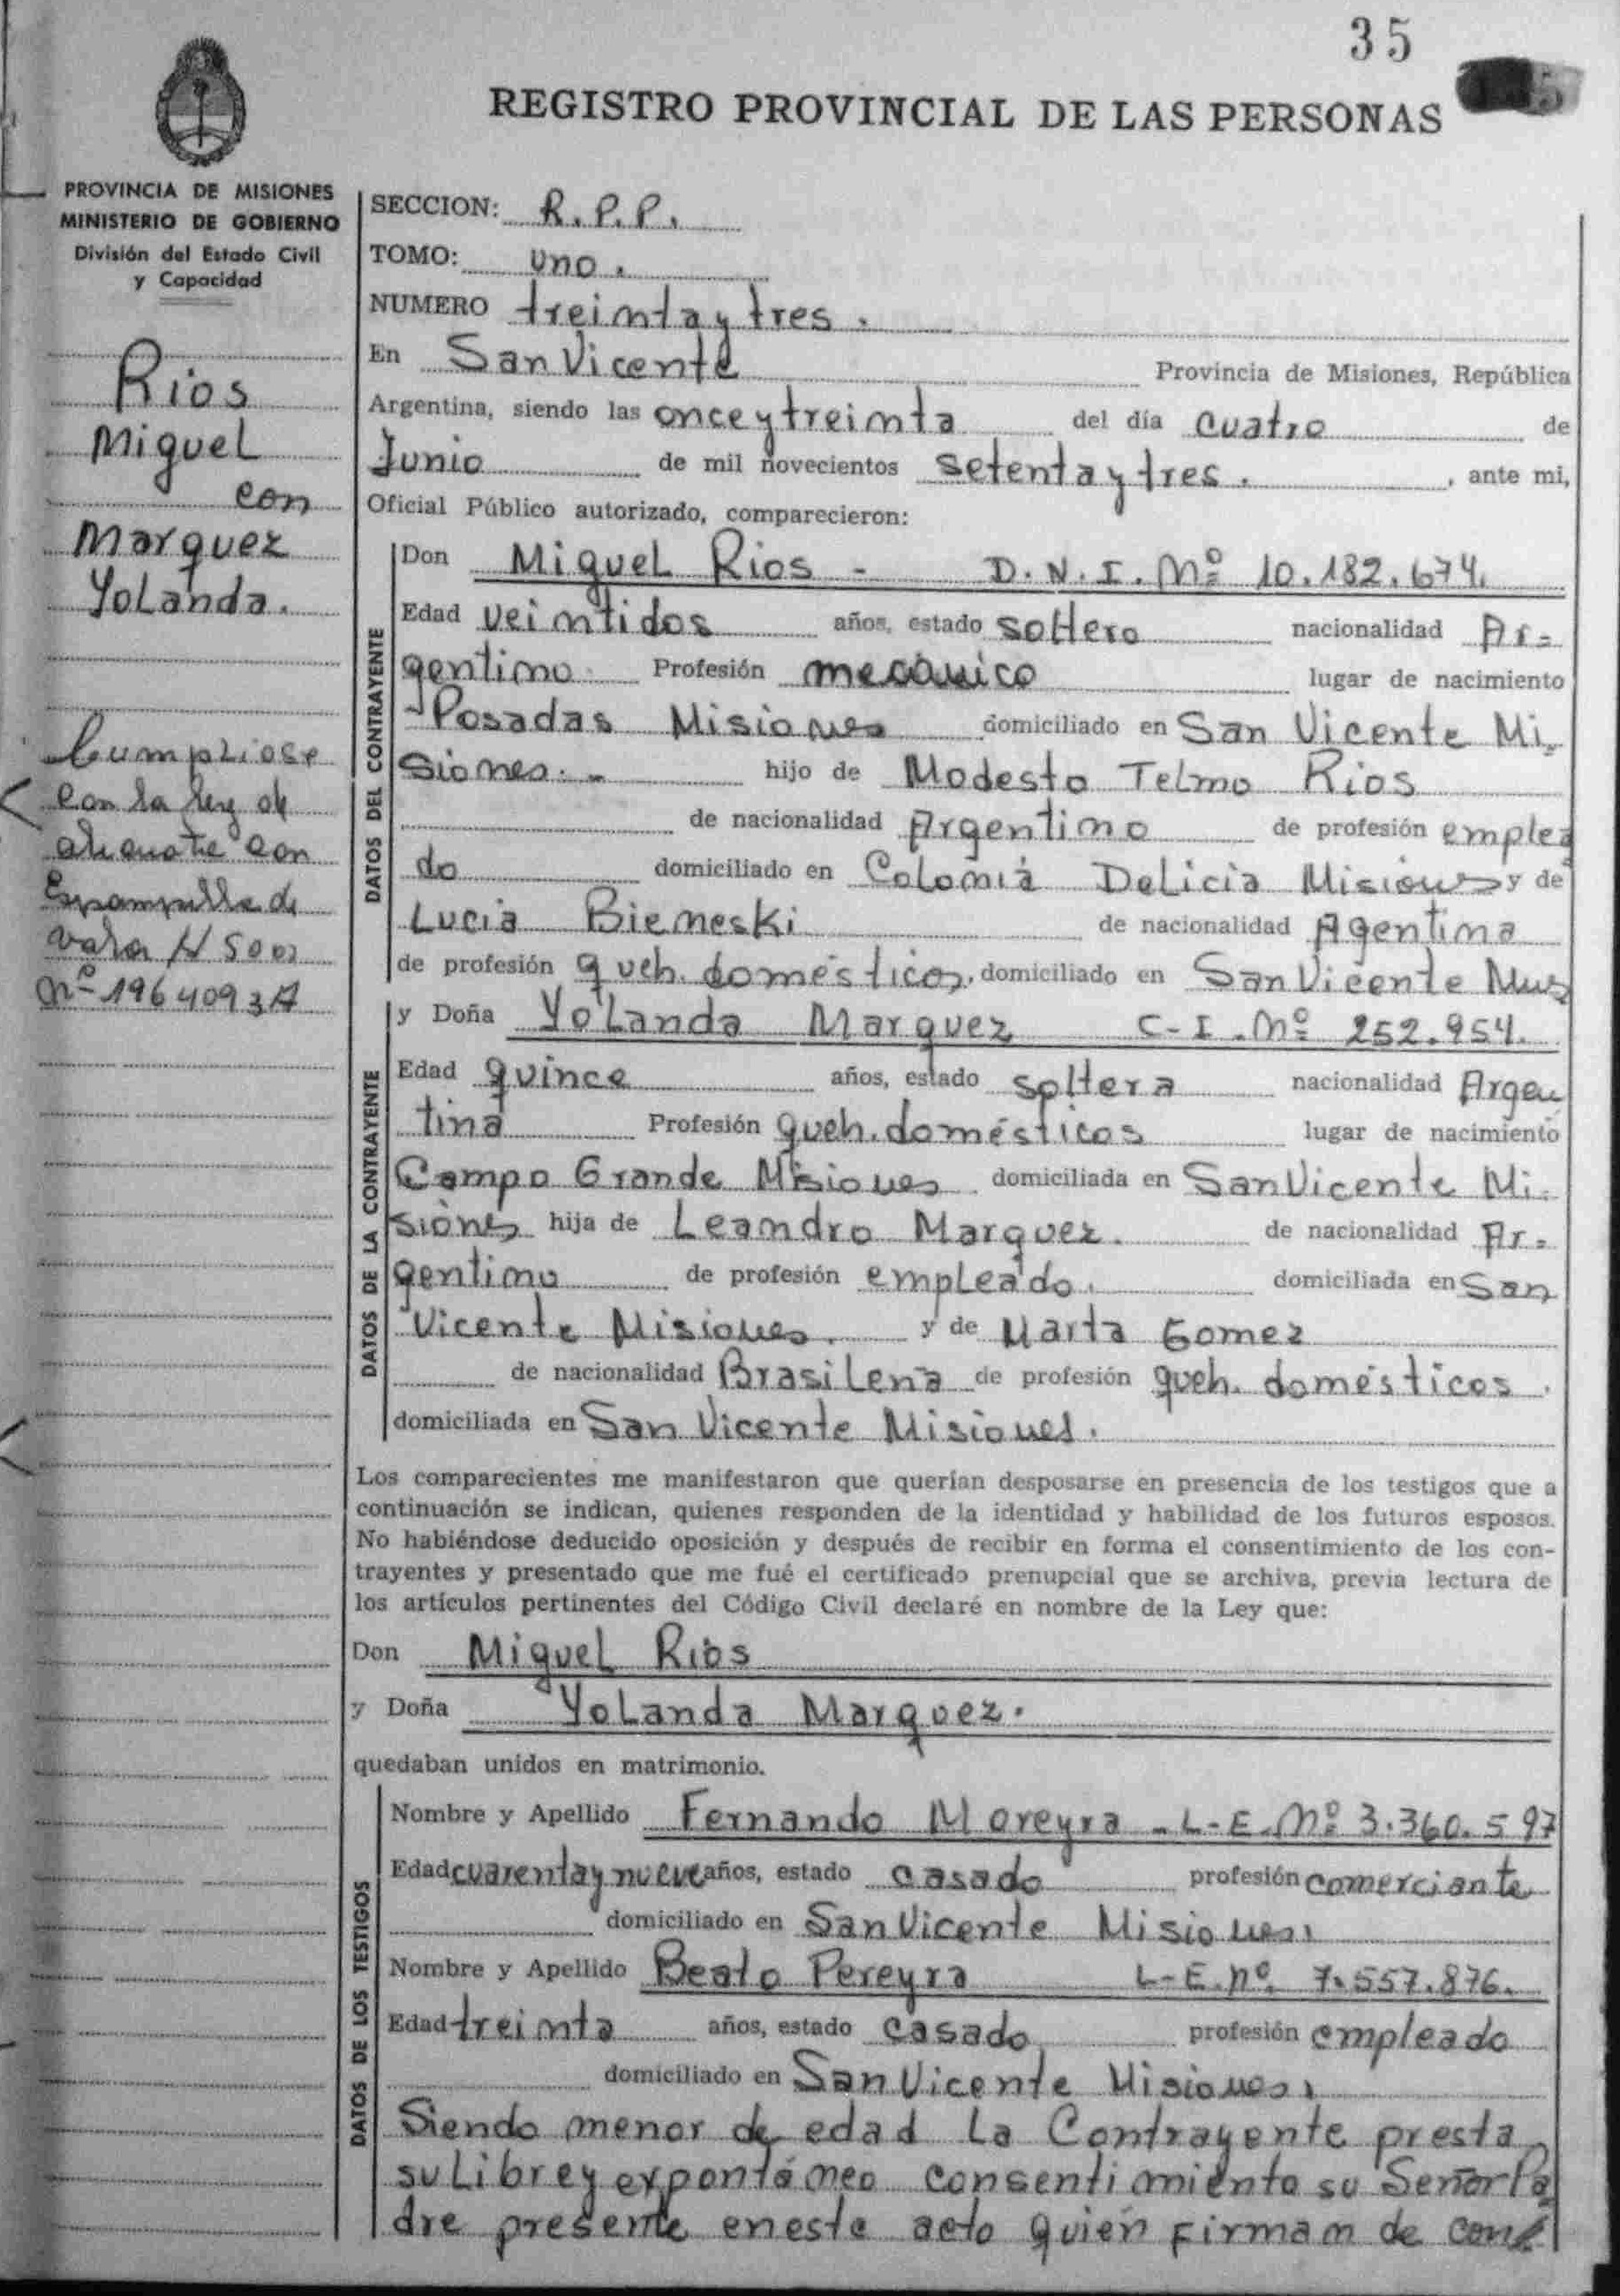 35
REGISTRO PROVINCIAL DE LAS PERSONAS
PROVINCIA DE MISIONES
MINISTERIO DE GOBIERNO
División del Estado Civil
y Capacidad
Rios
Miguel
con
Marquez
Yolanda.
Cumpliose
con la ley de
con
Estampilla de
valor
Nº 1964093A
SECCION: R.P.P.
TOMO: uno.
NUMERO treinta y tres.
En San Vicente Provincia de Misiones, República
Argentina, siendo las once y treinta del día cuatro de
Junio de mil novecientos setenta y tres. , ante mi,
Oficial Público autorizado, comparecieron:
DATOS DEL CONTRAYENTE
Don Miguel Rios - D.N.I. Nº 10.182.674.
Edad veintidos años, estado soltero nacionalidad Ar-
gentino Profesión mecánico lugar de nacimiento
Posadas Misiones domiciliado en San Vicente Mi-
siones.- hijo de Modesto Telmo Rios
de nacionalidad Argentino de profesión emplea
do domiciliado en Colonia Delicia Misiones y de
Lucia Bieneski de nacionalidad Agentina
de profesión queh. domésticos, domiciliado en San Vicente Mns
DATOS DE LA CONTRAYENTE
y Doña Yolanda Marquez C-I.Nº 252.954.
Edad quince años, estado soltera nacionalidad Argen
tina Profesión queh. domésticos lugar de nacimiento
Campo Grande Misiones domiciliada en San Vicente Mi-
siones hija de Leandro Marquez. de nacionalidad Ar-
gentino de profesión empleado. domiciliada en San
Vicente Misiones. y de Marta Gomez
de nacionalidad Brasileña de profesión queh. domésticos.
domiciliada en San Vicente Misiones.
Los comparecientes me manifestaron que querían desposarse en presencia de los testigos que a
continuación se indican, quienes responden de la identidad y habilidad de los futuros esposos.
No habiéndose deducido oposición y después de recibir en forma el consentimiento de los con-
trayentes y presentado que me fué el certificado prenupcial que se archiva, previa lectura de
los artículos pertinentes del Código Civil declaré en nombre de la Ley que:
Don Miguel Rios
y Doña Yolanda Marquez.
quedaban unidos en matrimonio.
DATOS DE LOS TESTIGOS
Nombre y Apellido Fernando Moreyra - L-E.Nº 3.360.597
Edad cuarenta y nueve años, estado casado profesión comerciante
domiciliado en San Vicente Misiones.
Nombre y Apellido Beato Pereyra L-E.nº. 7.557.876.
Edad treinta años, estado casado profesión empleado
domiciliado en San Vicente Misiones.
Siendo menor de edad la Contrayente presta
su Libre y expontáneo consentimiento su Señor Pa
dre presente en este acto quién firman de conf.